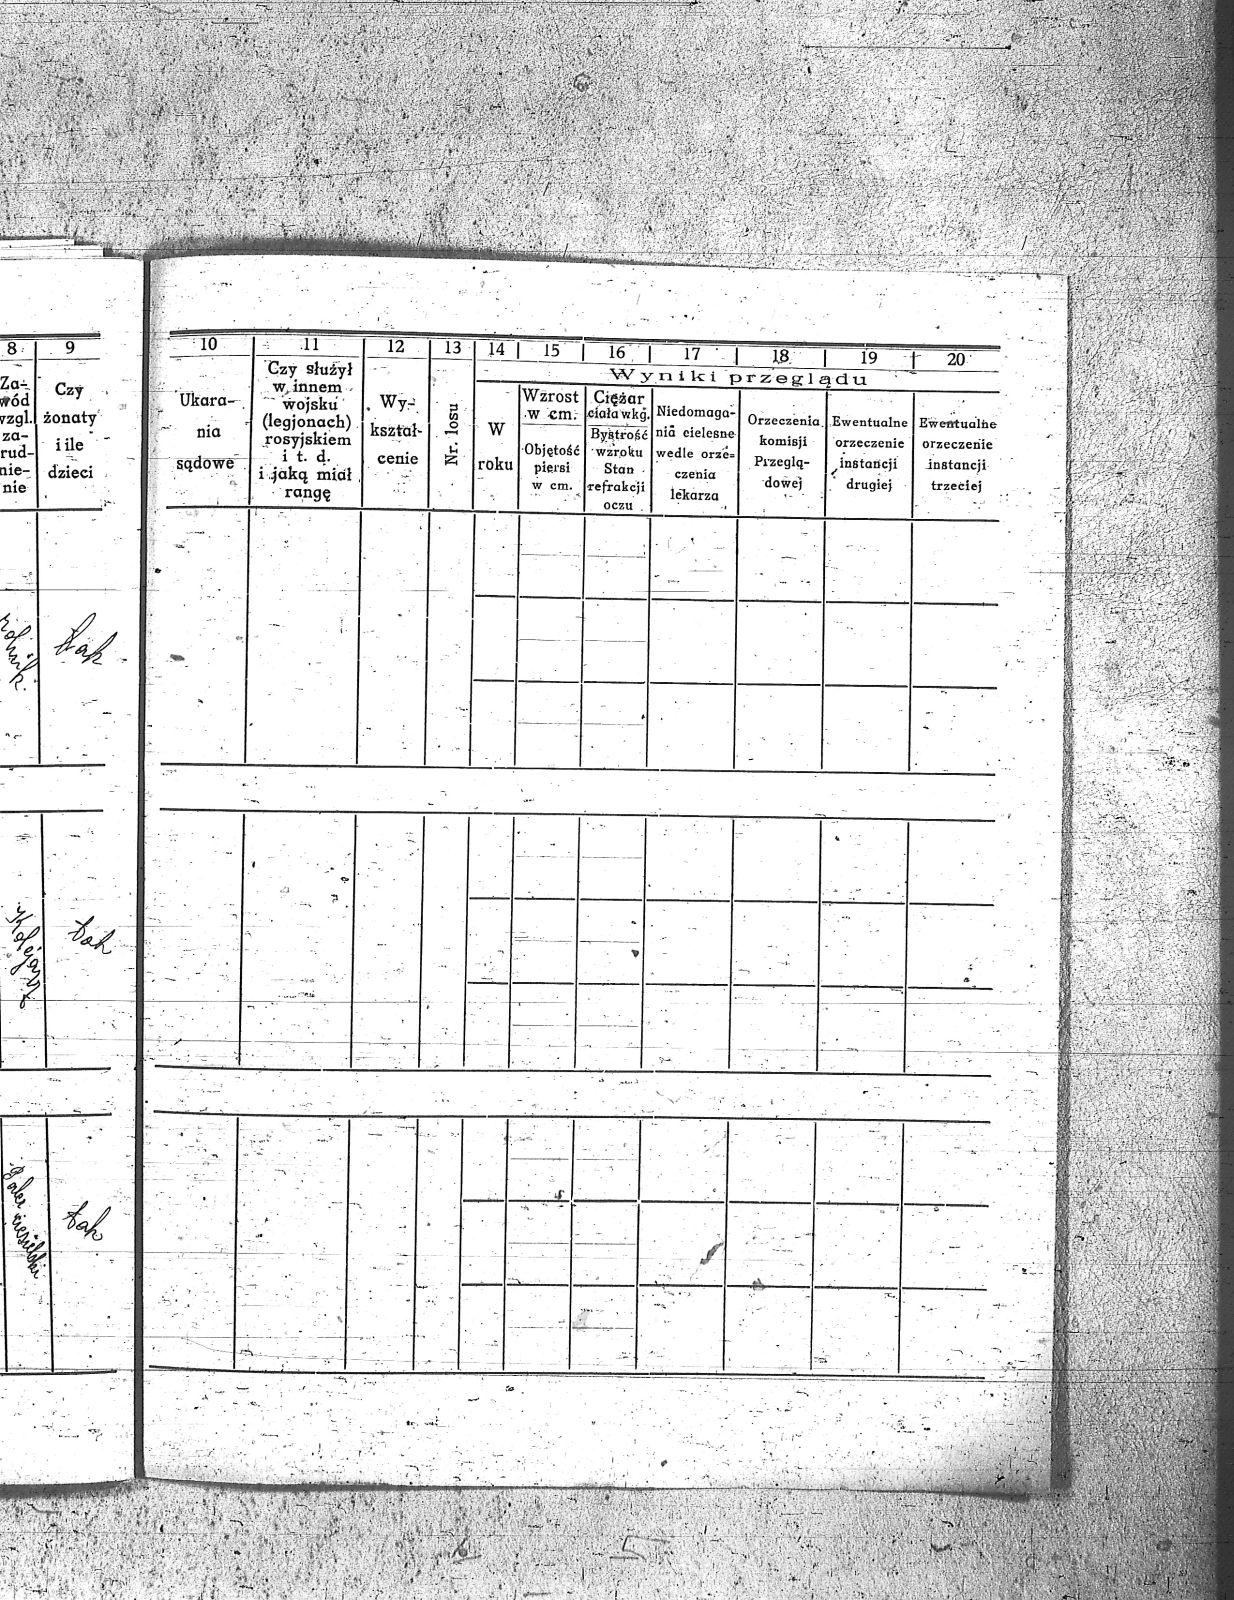 8 9
Za-
wód
wzgl.
za-
rud-
nie-
nie
Czy
żonaty
i ile
dzieci
10 11 12 13 14 15 16 17 18 19 20
Wyniki przeglądu
Ukara-
nia
sądowe
Czy służył
w innem
wojsku
(legjonach)
rosyjskiem
i t. d.
i jaką miał
rangę
Wy-
kształ-
cenie
Nr. losu
W
roku
Wzrost
w cm.
Objętość
piersi
w cm.
Ciężar
ciała w kg.
Bystrość
wzroku
Stan
refrakcji
oczu
Niedomaga-
nia cielesne
wedle orze-
czenia
lekarza
Orzeczenia
komisji
Przeglą-
dowej
Ewentualne
orzeczenie
instancji
drugiej
Ewentualne
orzeczenie
instancji
trzeciej
rolnik
tak
Kolejarz
tak
tak